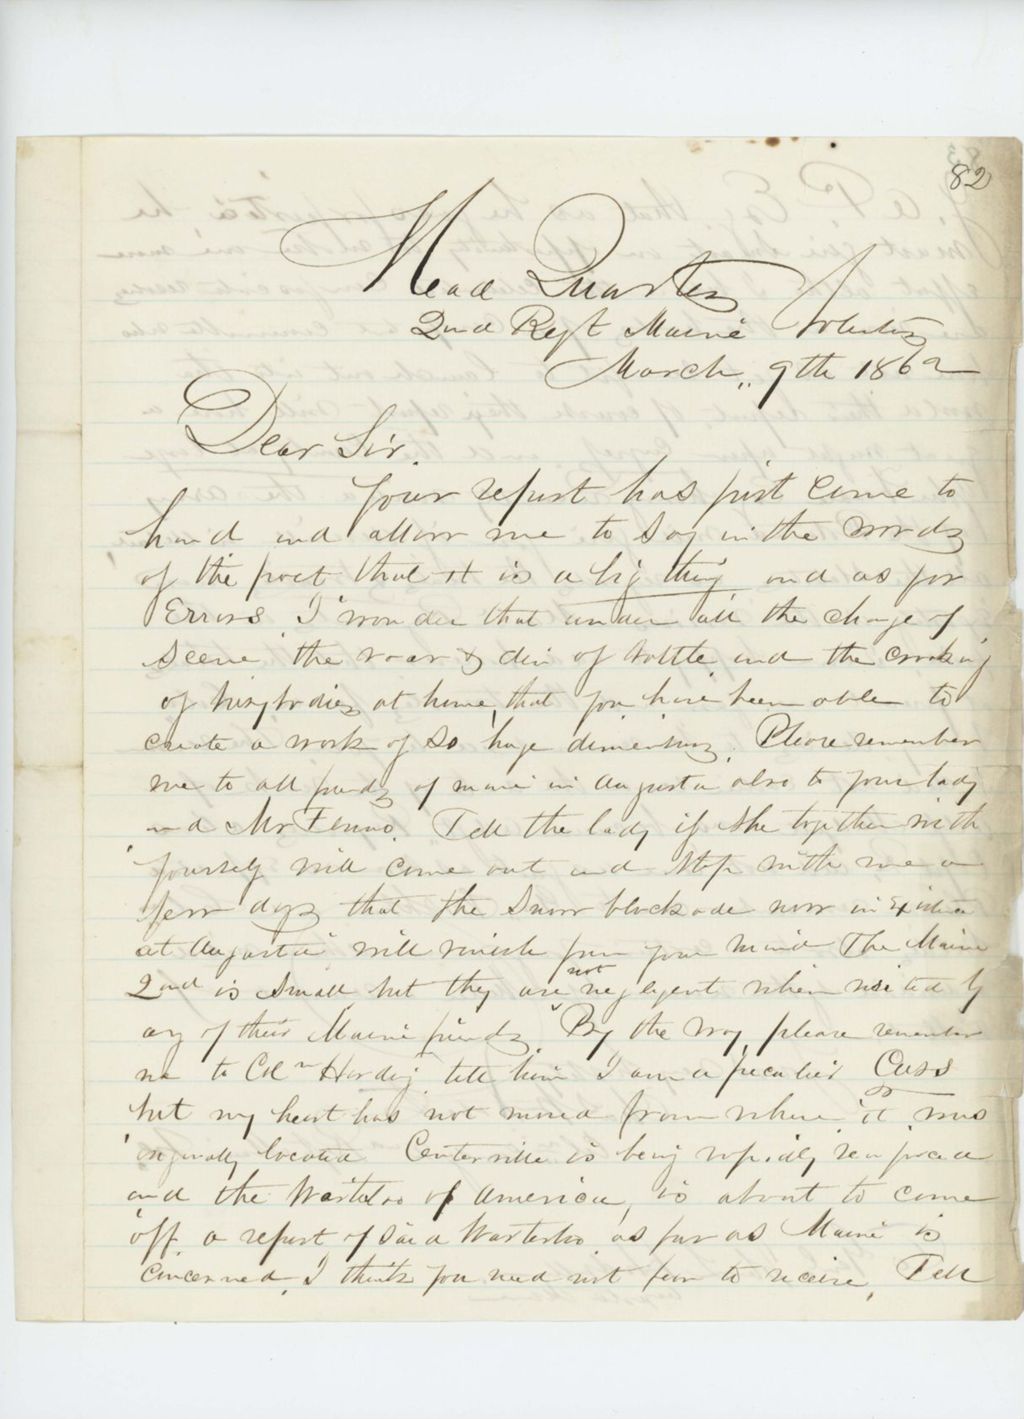 82
Head Quarters
2nd Regt Maine Volunteers
March, 9th 1862
Dear Sir.
Your report has just come to
hand and allow me to say in the words
of the poet that it is a big thing and as for
Errors, I wonder that under all the change of
scene, the roar & din of battle and the croaking
of busybodies at home, that you have been able to
create a work of so huge dimensions. Please remember
me to all friends of mine in Augusta also to your lady
and Mr Fenno. Tell the lady if she together with
yourself will come out and stop with me a
few days that the snow blockade now in Existence
at Augusta will vanish from your mind The Maine
2nd is small but they are not negligent when visited by
any of their Maine friends. By the way, please remember
me to Coln Harding tell him I am a peculiar Cuss
but my heart has not moved from where it was
originally located Centerville is being rapidly reinforced
and the Warterloo of America, is about to come
off. a report of said Warterloo as far as Maine is
concerned, I think you need not fear to receive, Tell